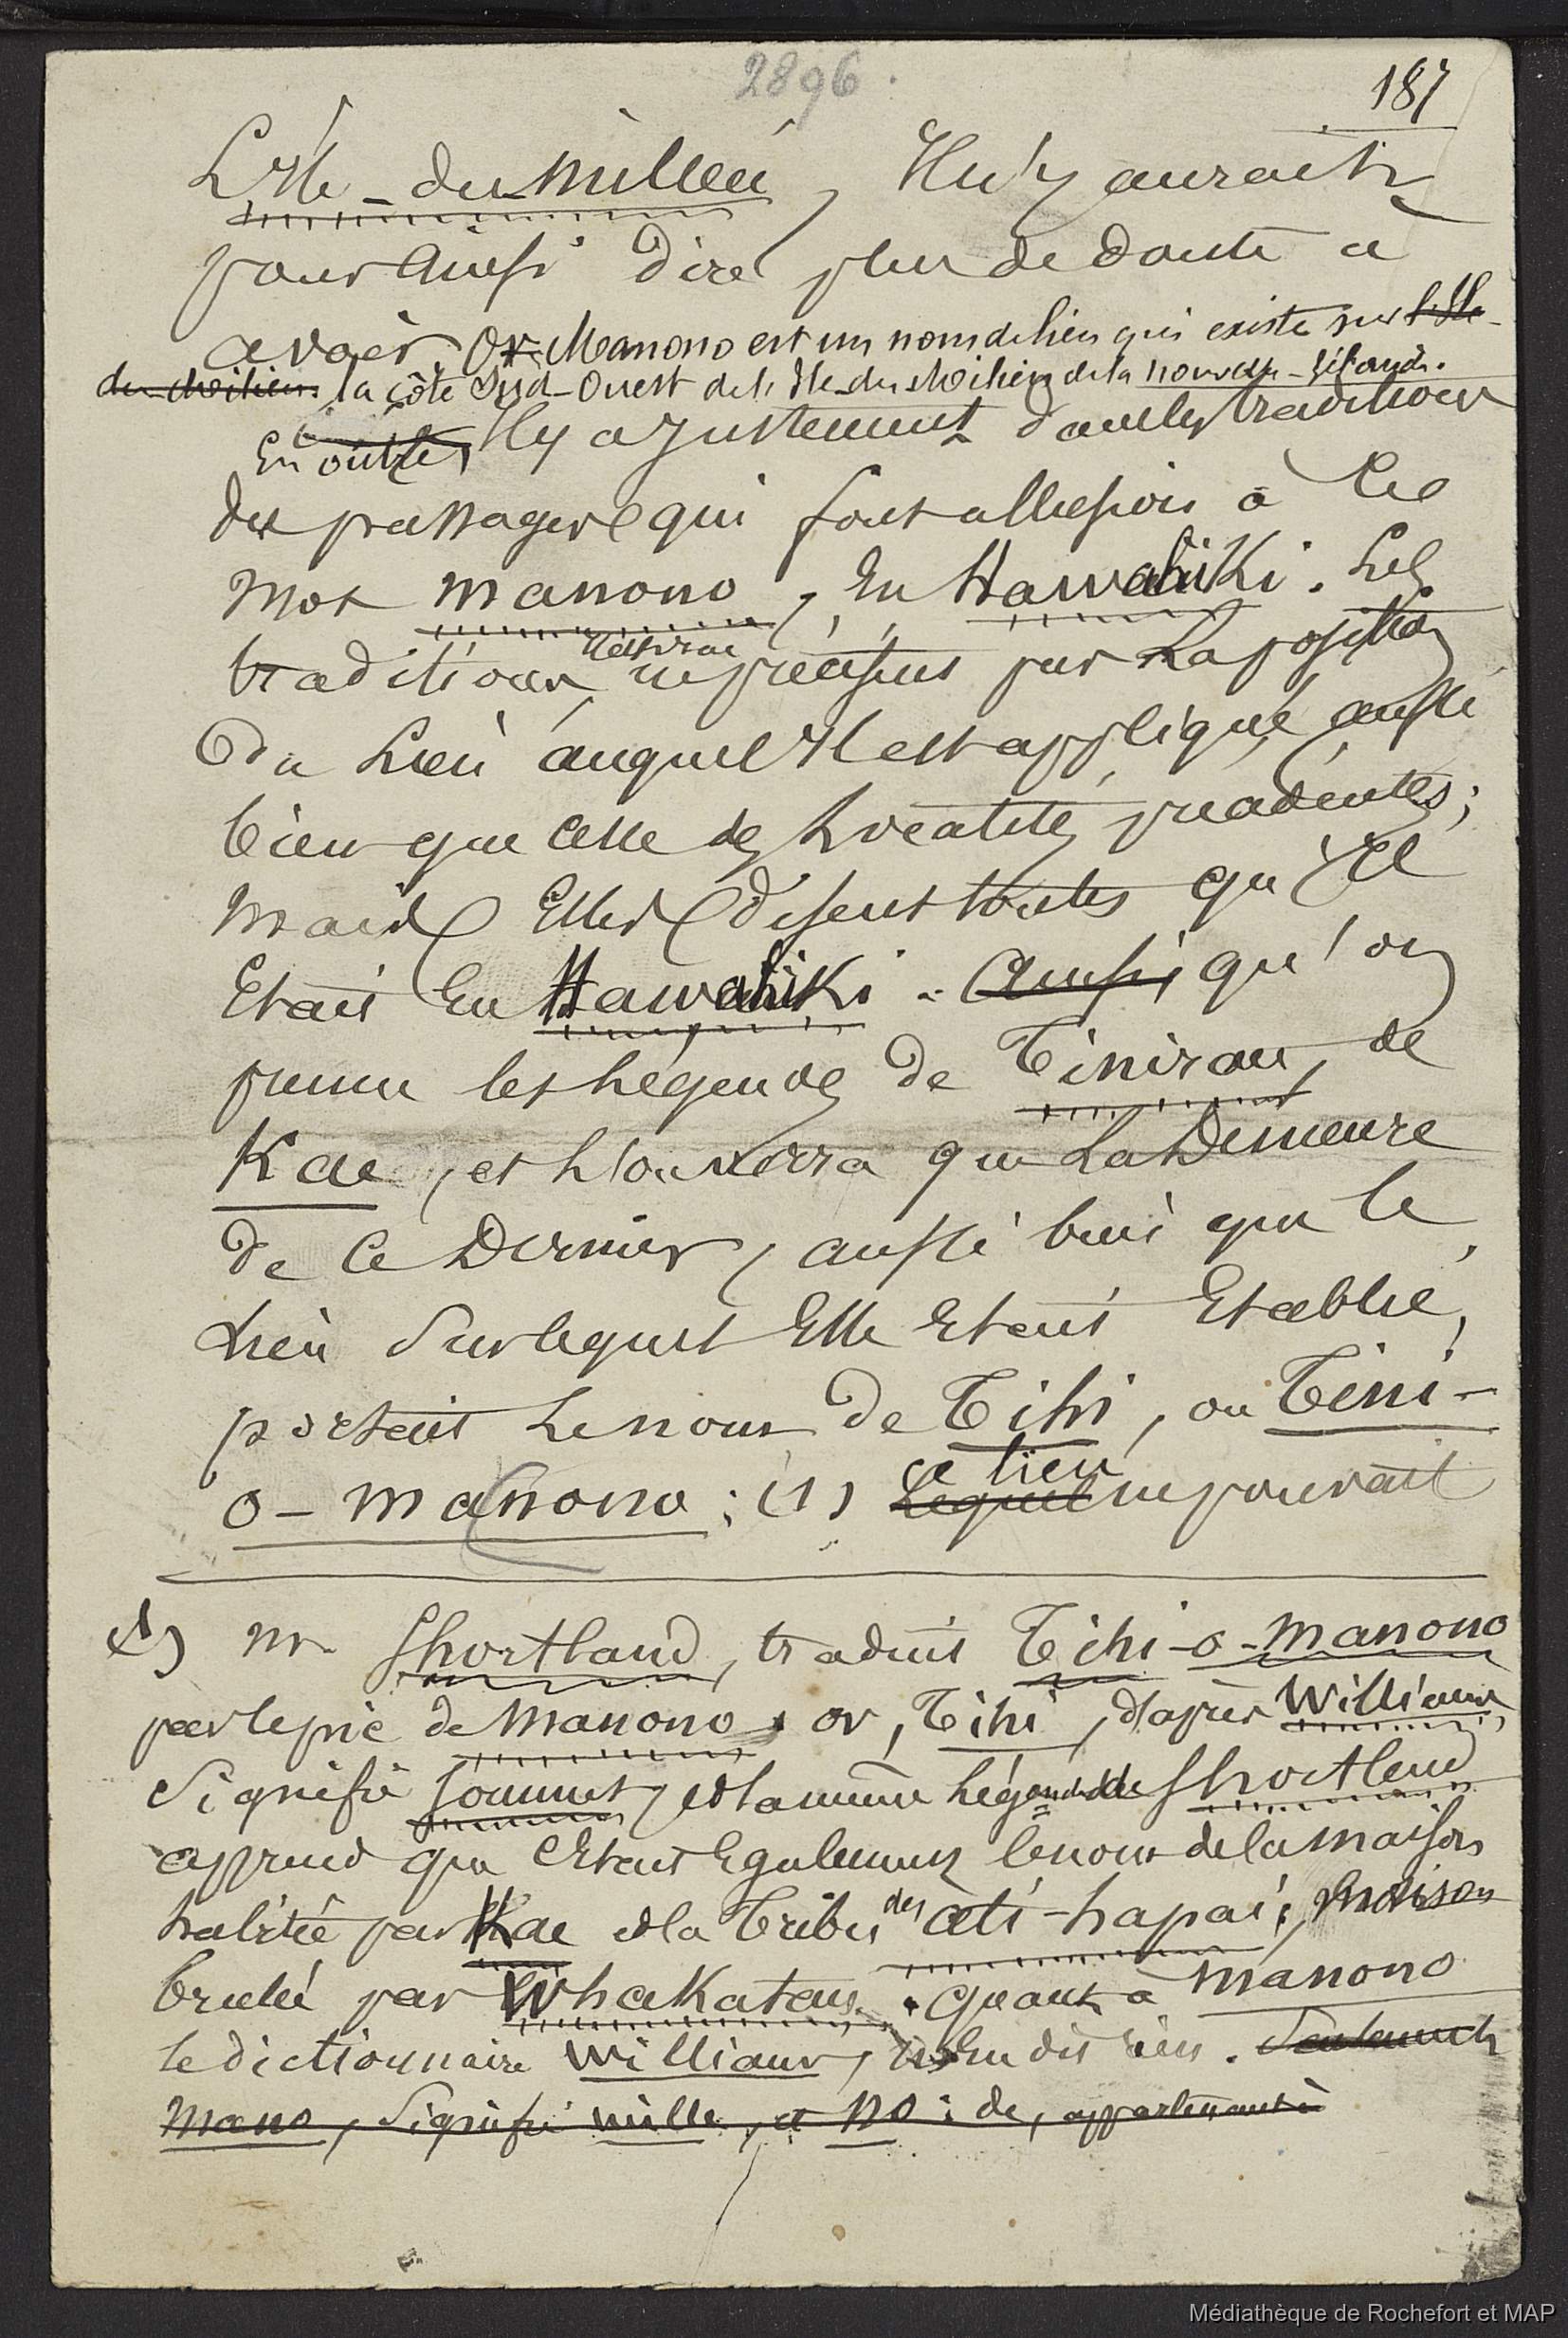 2896
187
L'Ile-du-Milieu, Il n'y aurait
pour ainsi dire plus de doute à
avoir. Or Manono est un nom de lieu qui existe sur l'Ile
du Milieu. la côte Sud-Ouest de l'Ile du Milieu de la nouvelle-Zélande.
En outre, Il y a justement dans les traditions
des passages qui font allusion à ce
Mot manono, En Hawahiki. Les
traditions ne précisent pas La position
du Lieu auquel Il est appliqué, aussi
bien que celle des Localités précédentes;
mais Elles disent toutes qu'Il
Etait En Hawahiki. Ainsi, qu'on
prenne les Légendes de Tinirau, de
Kae, et L'on verra que La Demeure
de ce Dernier, aussi bien que le
Lieu sur lequel Elle Etait Etablie,
portait Le nom de Tihi, ou Tini-
o-manono; (1) Lequel ce lieu ne pouvait
(1) Mr Shortland, traduit Tihi-o-manono
par le pic de Manono; or, Tihi, d'après Williams,
Signifie Sommet, et la même Légende de Shortland
apprend que c'Etait Egalement le nom de la maison
habitée par Kae et la Tribu des ati-hapai; maison
brulée par WhaKatau. Quant à manono
le dictionnaire Williams, n'En dit rien. Seulement
Mano, Signifie mille, et no: de, appartenant à
Médiathèque de Rochefort et MAP